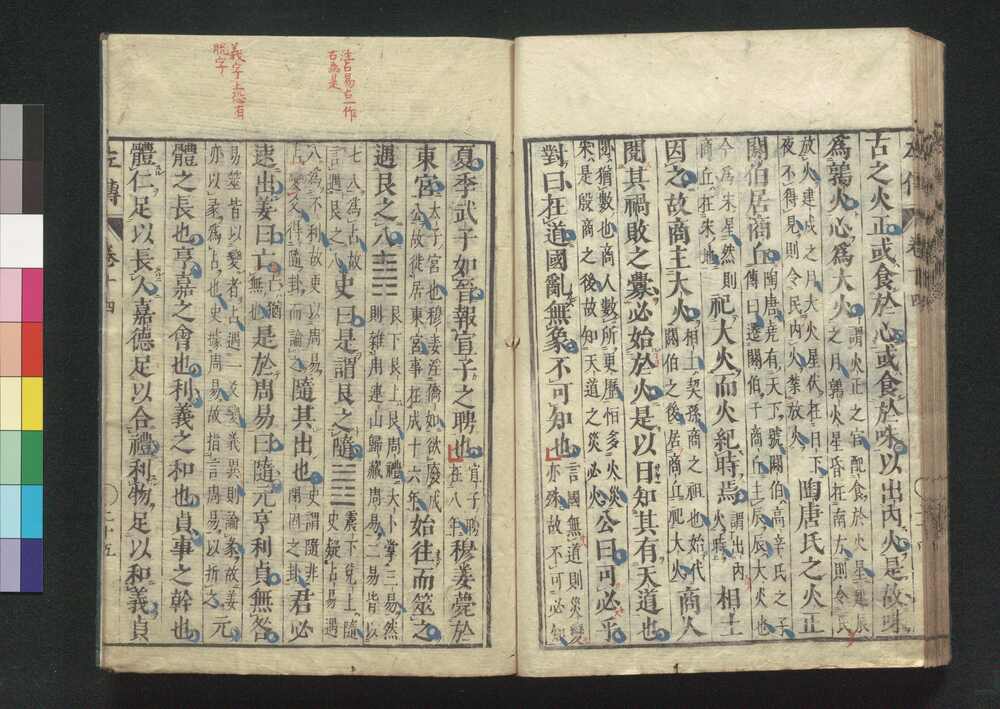 古之火正或食於心或食於咮以出內火是故咮
為鶉火心為大火
謂火正之官配食於火星建辰
之月鶉火星昏在南方則令民
放火建戌之月大火星伏在日下
夜不得見則令民內火禁放火
陶唐氏之火正
閼伯居商丘
陶唐堯有天下號閼伯高辛氏之子
傳曰遷閼伯于商丘主辰辰大火也
今為宋星然則
商丘在宋地
祀大火而火紀時焉
謂出內
火時
相土
因之故商主大火
相土契孫商之祖也始代
閼伯之後居商丘祀大火
商人
閱其禍敗之釁必始於火是以日知其有天道也
閱猶數也商人數所更歷恒多火災
宋是殷商之後故知天道之災必火
公曰可必乎
對曰在道國亂無象不可知也
言國無道則災變
亦殊故不可必知
注占易占一作
古為是
義字上恐有
脫字
夏季武子如晉報宣子之聘也
宣子聘
在八年
穆姜薨於
東宮
太子宮也穆姜淫僑如欲廢成
公故徙居東宮事在成十六年
始往而筮之
遇艮之八
艮下艮上艮周禮大卜掌三易然
則雜用連山歸藏周易二易皆以
七八為占故
言遇艮之八
史曰是謂艮之隨
震下兌上隨
史疑占易遇
八為不利故更以周易
占變爻得隨卦而論之
隨其出也
史謂隨非
閉固之卦
君必
速出姜曰亡
亡猶
無也
是於周易曰隨元亨利貞無咎
易筮皆以變者占遇一爻變義異則論彖故姜
亦以彖為占也史據周易故指言周易以折之
元
體之長也亨嘉之會也利義之和也貞事之幹也
體仁足以長人嘉德足以合禮利物足以和義貞
左傳 卷十四 二十五